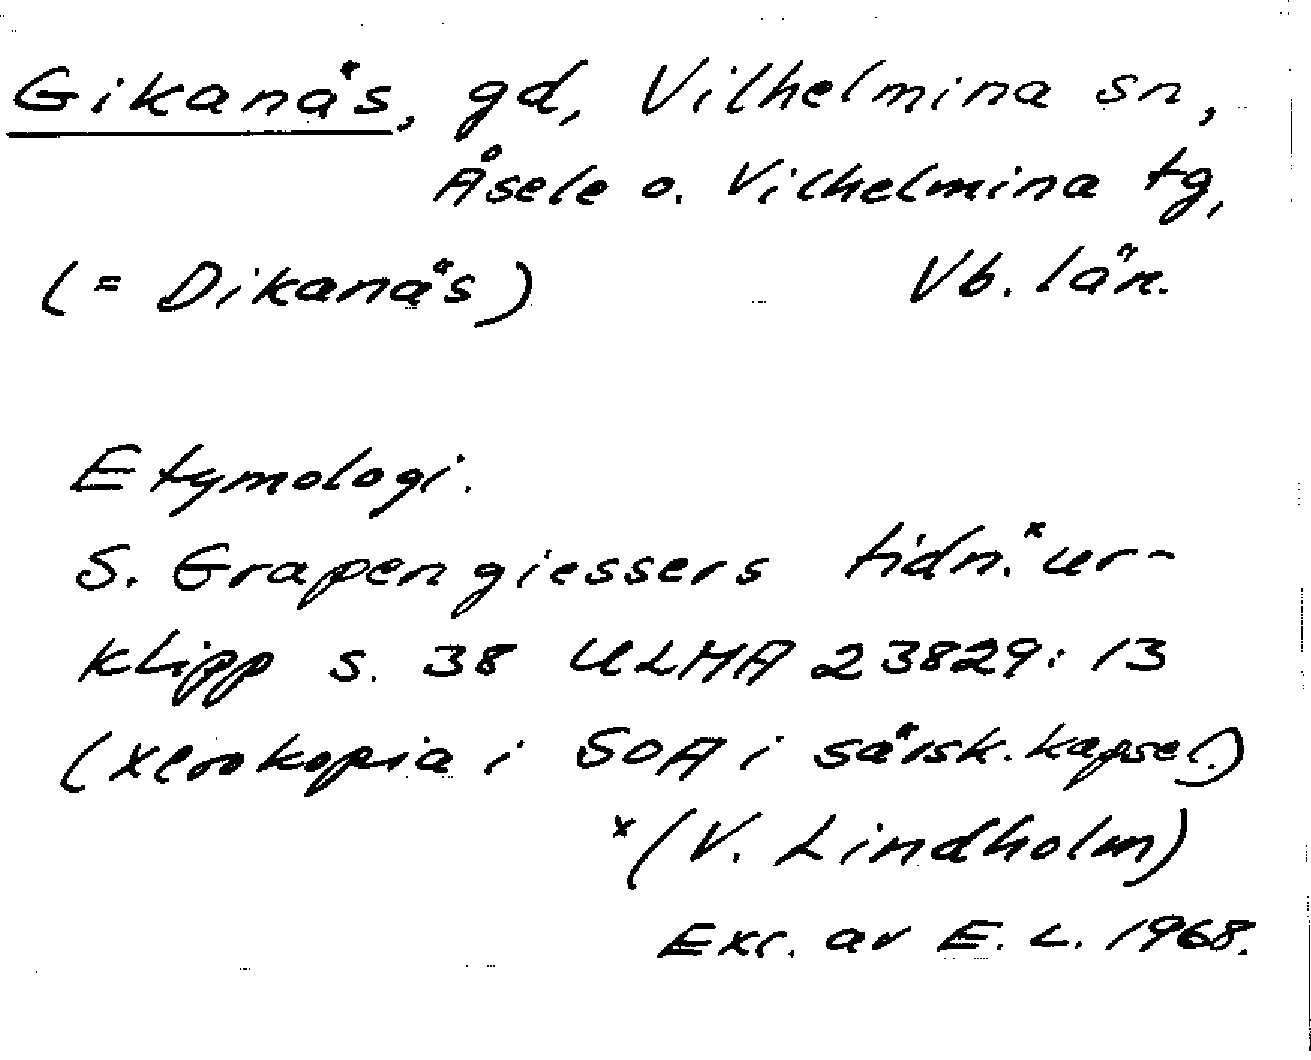 Gikanäs, gd, Vilhelmina sn,
Åsele o. Vilhelmina tg,
(= Dikanäs) Vb. län.
Etymologi.
S. Grapengiessers tidn.ˣur-
klipp s. 38 ULMA 23829:13
(xerokopia i SOA i särsk. kapsel.)
ˣ(V. Lindholm)
Exc. av E. L. 1968.